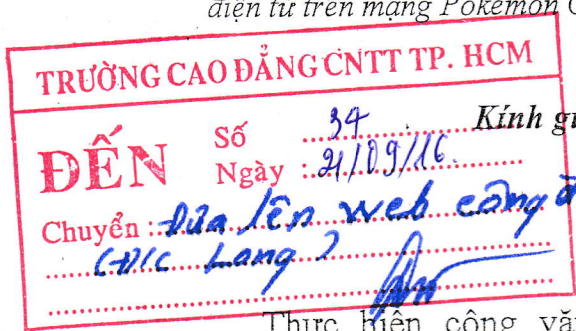 điện tử trên mạng Pokemon
TRƯỜNG CAO ĐẲNG CNTT TP. HCM
ĐẾN
Số 34
Kính
Ngày : 21/09/16
Chuyển : Đưa lên web công
(Đ/c Long)
Thực hiện công